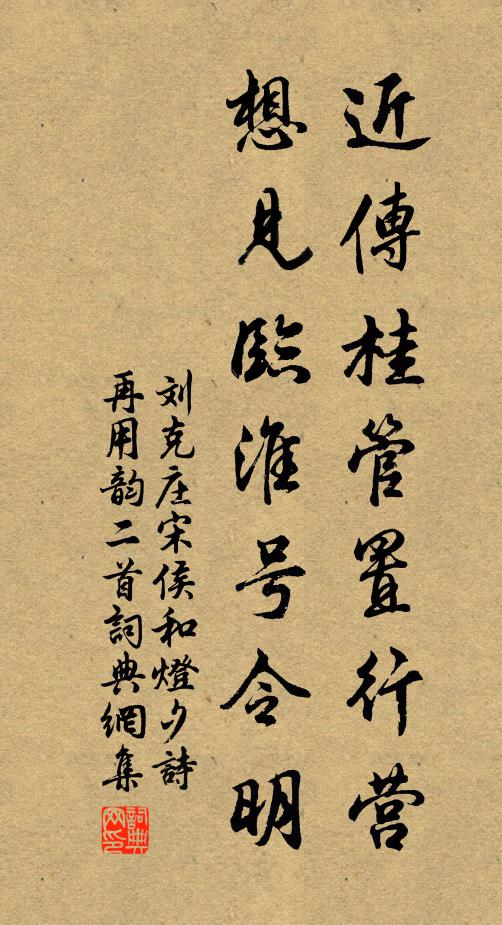 近傳桂管置行营
想見臨淮号令明
刘克庄宋侯和燈夕詩
再用韵二首詞典網集
詞典网印